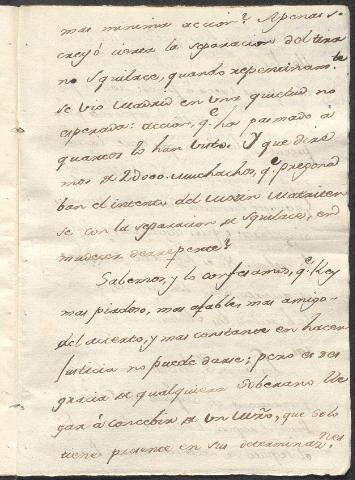 mas minima accion? Apenas se
creyó cierta la separacion del tira
no Squilace, quando repentinamte
se vio Madrid en una quietud no
esperada: accion, qe ha pasmado à
quantos lo han visto. Y que dire
mos de 2 Dooo. muchachos, qe pregona
ban el intento del Motin Matriten
se con la separacion de Squilace, en
mudecer derrepente?
Sabemos, y lo confesamos, qe Rey
mas piadoso, mas afable, mas amigo
del acierto, y mas constante en hacer
Justicia no puede darse; pero es des
gracia de qualquiera Soberano lle
gar à concebir de un Mtro, que solo
tiene presente en sus determinaznes